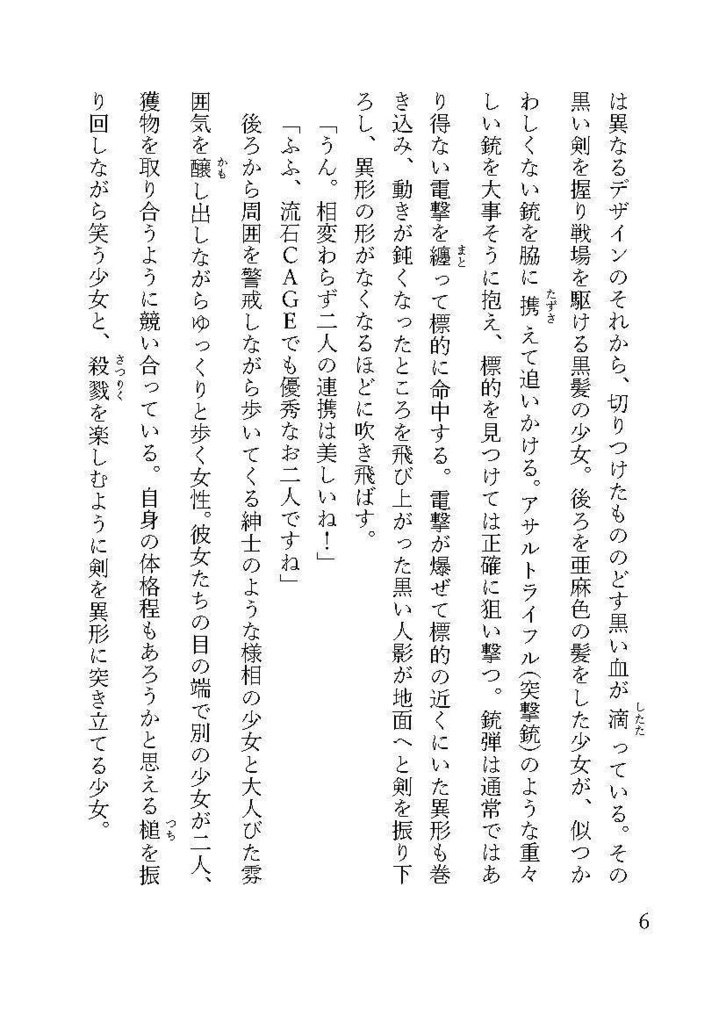 は異なるデザインのそれから、切りつけたもののどす黒い血が滴っている。その
黒い剣を握り戦場を駆ける黒髪の少女。後ろを亜麻色の髪をした少女が、似つか
わしくない銃を脇に携えて追いかける。アサルトライフル(突撃銃)のような重々
しい銃を大事そうに抱え、標的を見つけては正確に狙い撃つ。銃弾は通常ではあ
り得ない電撃を纏って標的に命中する。電撃が爆ぜて標的の近くにいた異形も巻
き込み、動きが鈍くなったところを飛び上がった黒い人影が地面へと剣を振り下
ろし、異形の形がなくなるほどに吹き飛ばす。
「うん。相変わらず二人の連携は美しいね！」
「ふふ、流石CAGEでも優秀なお二人ですね」
後ろから周囲を警戒しながら歩いてくる紳士のような様相の少女と大人びた雰
囲気を醸し出しながらゆっくりと歩く女性。彼女たちの目の端で別の少女が二人、
獲物を取り合うように競い合っている。自身の体格程もあろうかと思える槌を振
り回しながら笑う少女と、殺戮を楽しむように剣を異形に突き立てる少女。
したた
たずさ
まと
かも
つち
さつりく
6